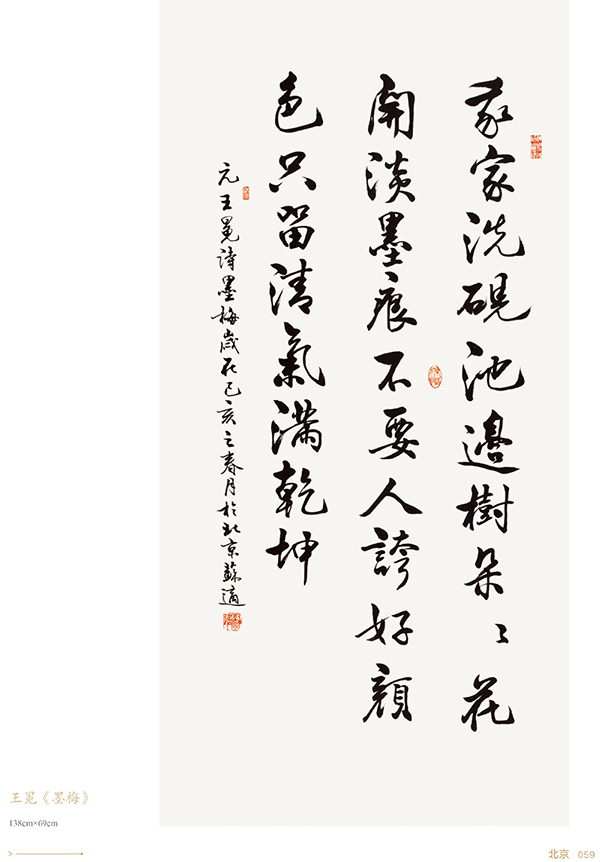 我家洗硯池邊樹朵〻花
開淡墨痕不要人誇好顏
色只留清氣滿乾坤
元王冕詩墨梅歲在己亥之春月於北京蘇適
王冕《墨梅》
138cm×69cm
北京 059